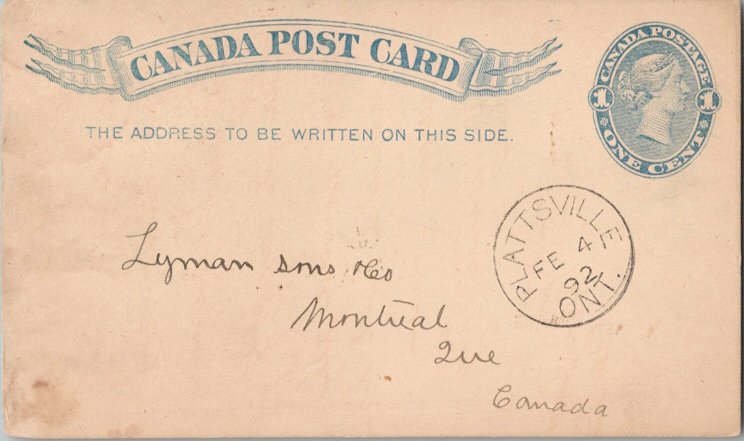 CANADA POST CARD
THE ADDRESS TO BE WRITTEN ON THIS SIDE.
CANADA POSTAGE
1 1
ONE CENT
PLATTSVILLE
FE 4
92
ONT.
Lyman sons & Co
Montreal
Que
Canada